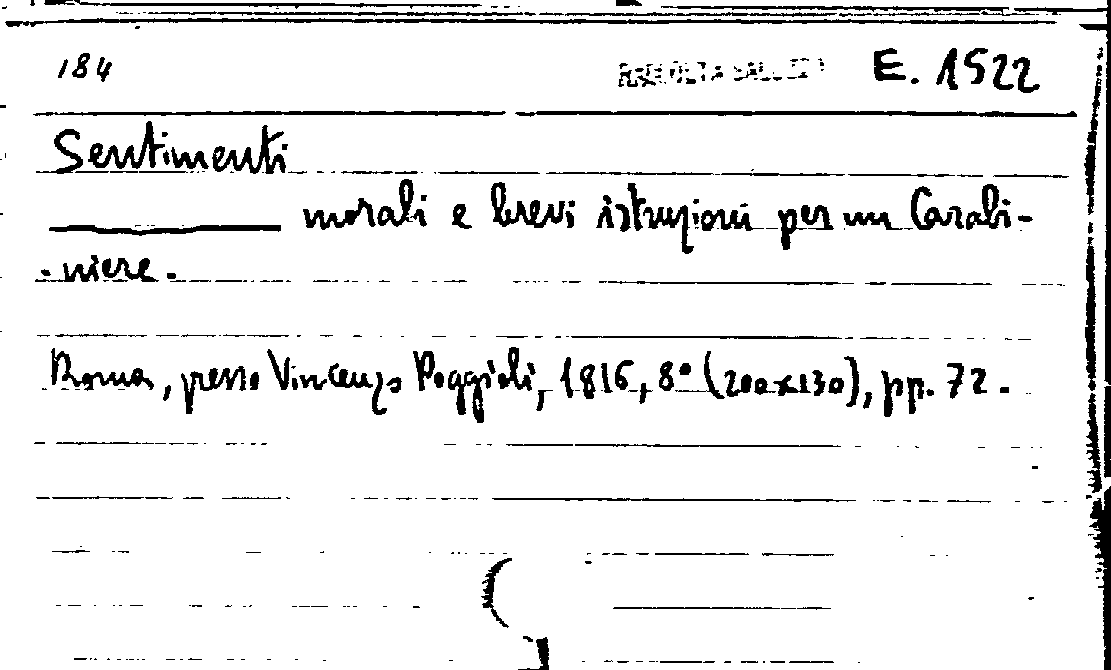 184 E. 1522
Sentimenti
morali e brevi istruzioni per un Carabi-
-niere.
Roma, presso Vincenzo Poggioli, 1816, 8° (200x130), pp. 72.